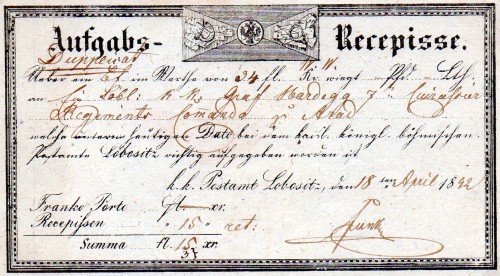 Aufgabs-Recepisse.
Duppewag W. W.
Ueber ein Bf im Werthe von 34 fl. Kr. wiegt Pfd. Lth.
an Ein Löbl: k. k. Graf Hardegg 7 Cuirassier
Regiments Comando zu Arad
welche unterm heutigen Dato bei dem kaiserl. königl. böhmischen
Postamte Lobositz richtig aufgegeben worden ist
k. k. Postamt Lobositz, den 18 ten April 18
Franko Porto fl xr.
Recepissen " 15 " ret:
Summa fl. 15 xr.